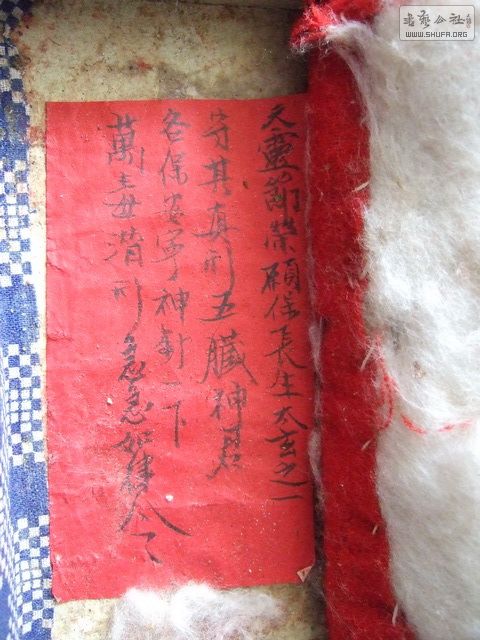 天靈節榮願保長生太玄之一
守其真形五臟神君
各保安寧神針一下
萬毒潛形急急如律令
書藝公社
WWW.SHUFA.ORG